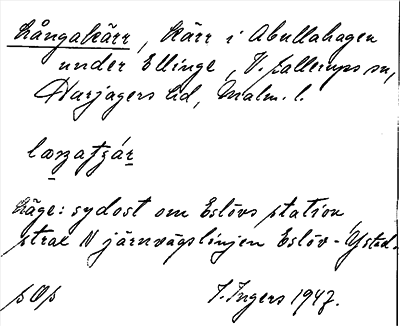 Långakärr, Kärr i Abullahagen
under Ellinge, V. Sallerups sn,
Harjagers hd, Malm. l.
Läge: sydost om Eslövs station
strax N järnvägslinjen Eslöv-Ystad.
I. Ingers 1947.